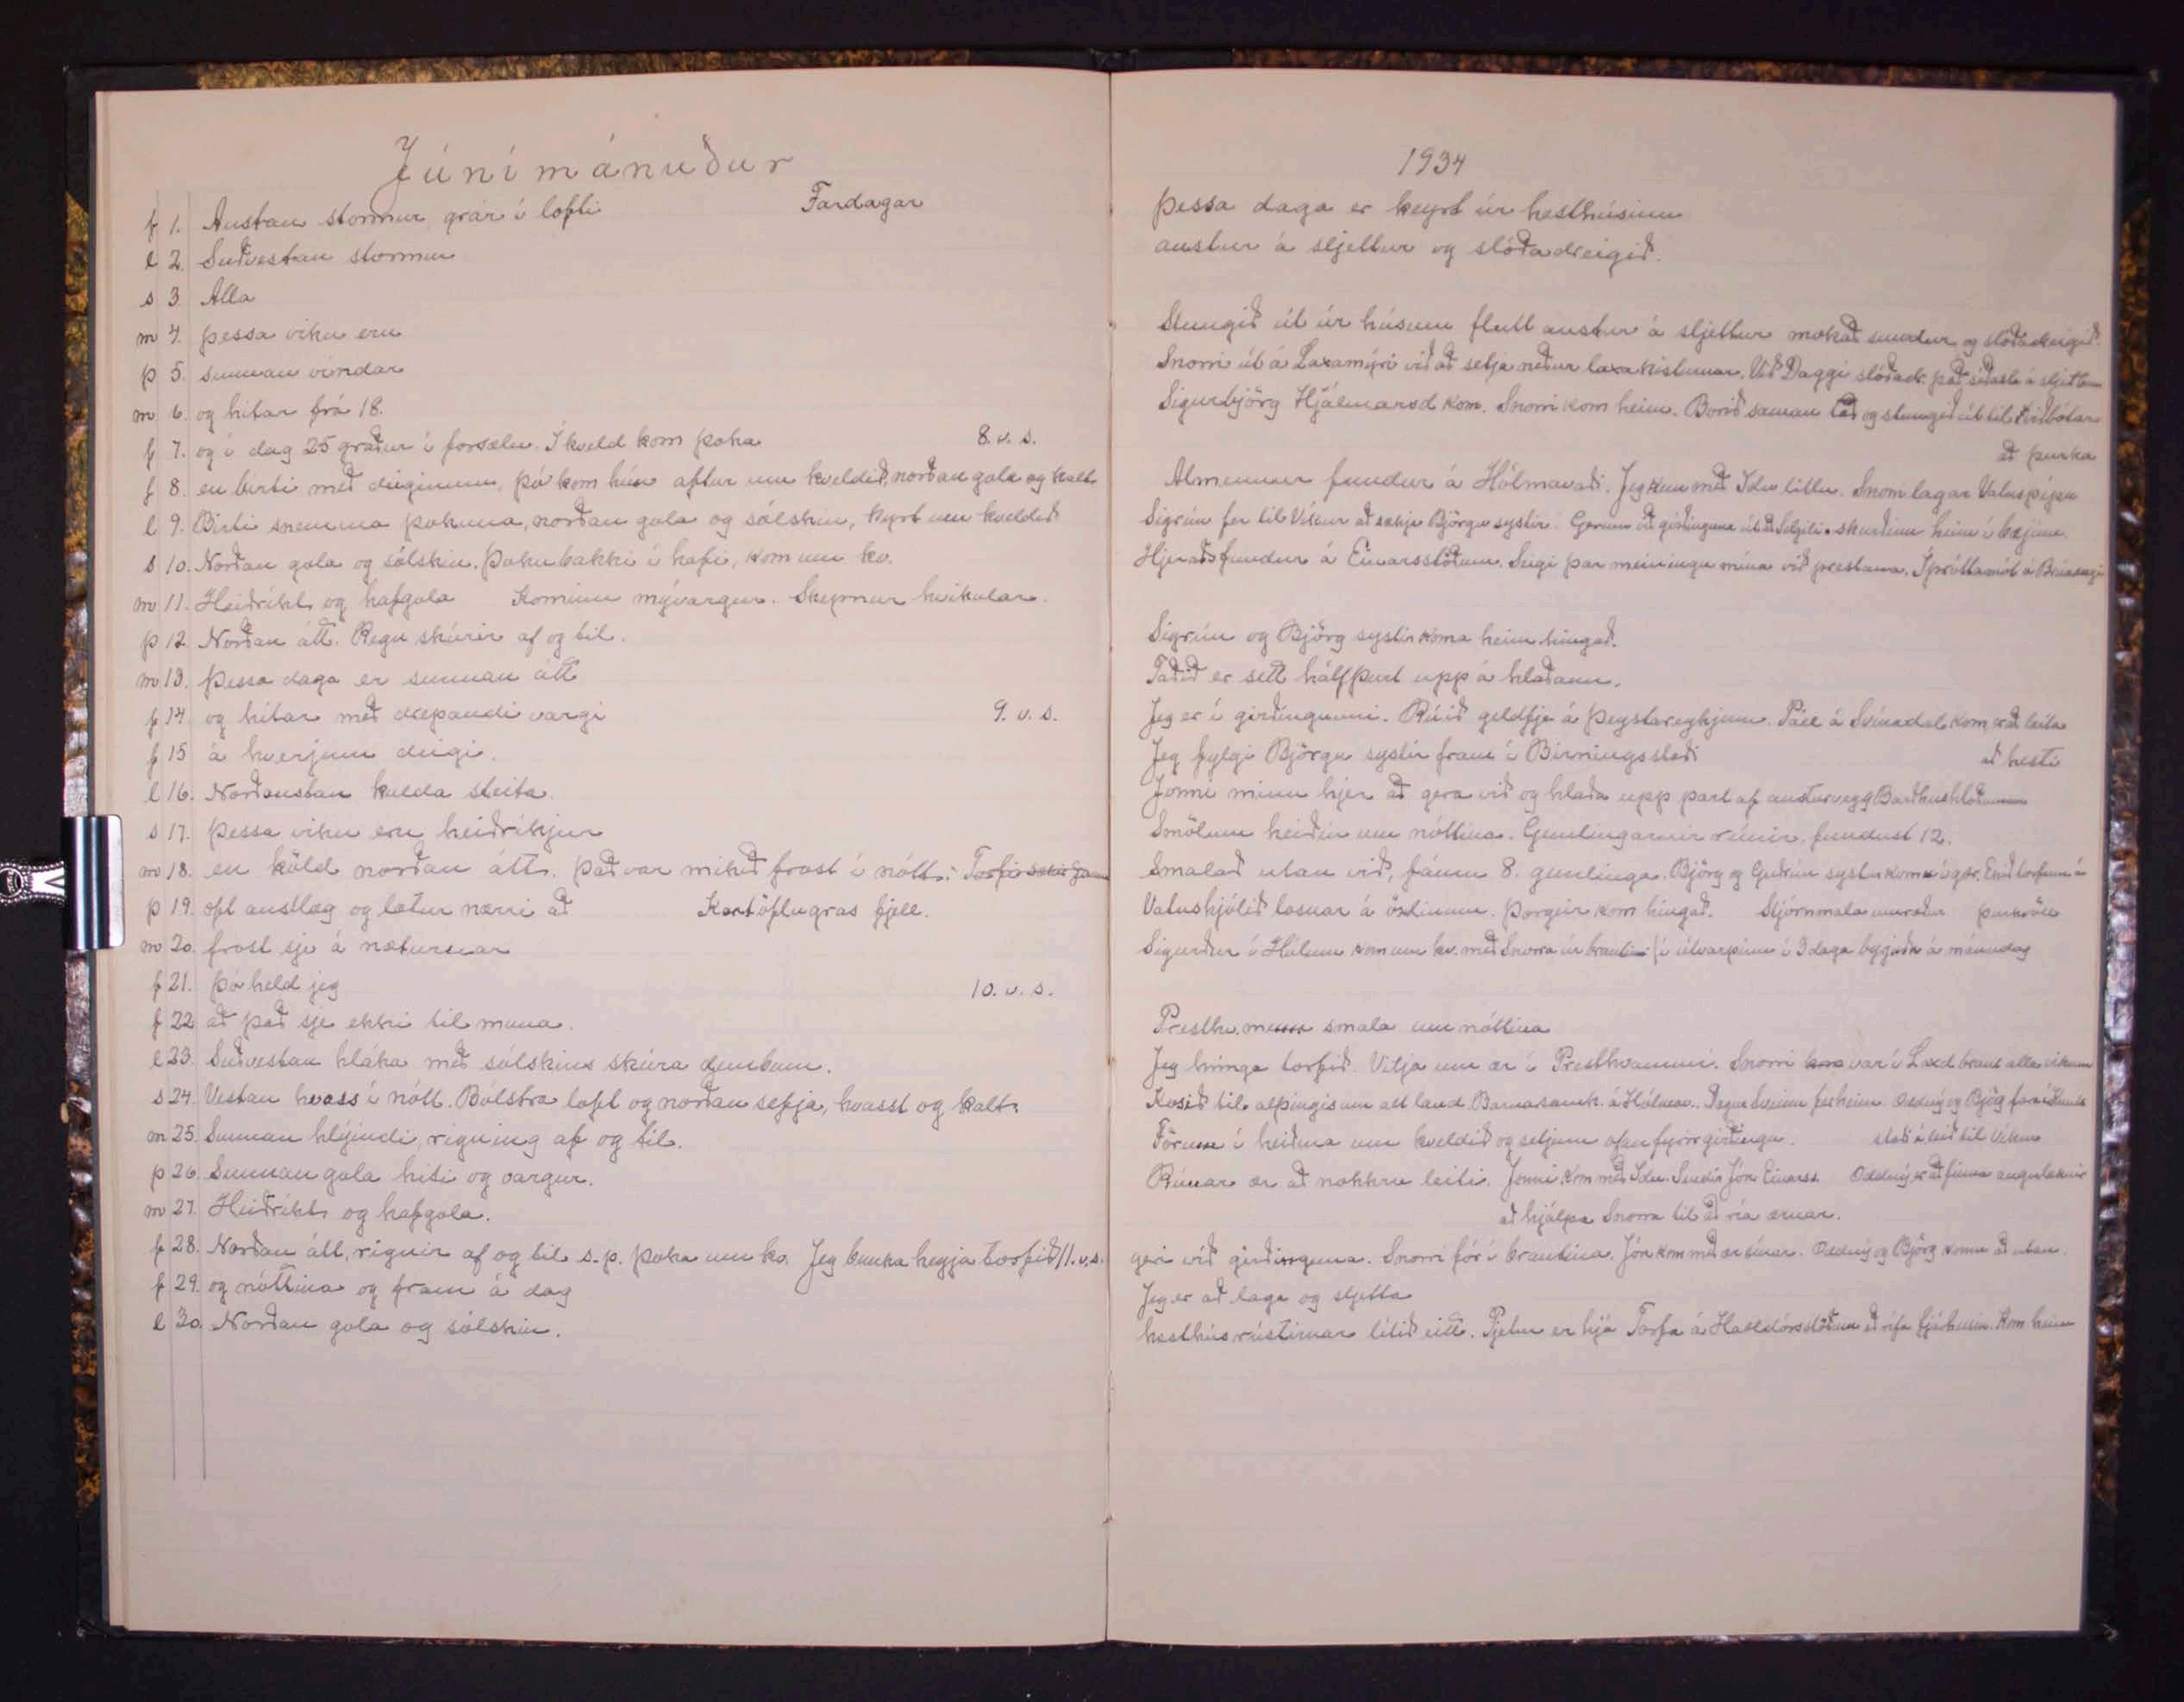 Júnímánuður
f 1. Austan stormur grár í lofti Fardagar
l 2. Suðvestan stormur
s 3. Alla
m 4. þessa viku eru
þ 5. sunnan vindar
m 6. og hitar frá 18.
f 7. og í dag 25 gráður í forsælu. Í kveld kom þoka 8. v. s.
f 8. en birti með deiginum, þó kom hún aftur um kveldið, norðan gola og kalt
l 9. Birti snemma þokuna, norðan gola og sólskin, kyrt um kveldið
s 10. Norðan gola og sólskin. Þokubakki í hafi, kom um kv.
m 11. Heiðríkt og hafgola Kominn mývargur. Skepnur hvikular.
þ 12. Norðan átt. Regn skúrir af og til.
m 13. þessa daga er sunnan átt
f 14. og hitar með drepandi vargi 9. v. s.
f 15 á hverjum deigi.
l 16. Norðaustan kulda steita.
s 17. þessa viku eru heiðríkjur
m 18. en köld norðan átt. Það var mikið frost í nótt. Torfi
þ 19. oft austlæg og lætur nærri að Kartöflugras fjell.
m 20. frost sje á næturnar
f 21. þó held jeg 10. v. s.
f 22 að það sje ekki til muna.
l 23. Suðvestan hláka með sólskins skúra dembum.
s 24. Vestan hvass í nótt. Bólstra loft og norðan sefja, hvasst og kalt.
m 25. Sunnan hlýindi, rigning af og til.
þ 26. Sunnan gola hiti og vargur.
m 27. Heiðríkt og hafgola.
f 28. Norðan átt, rignir af og til s. p. þoka um kv. Jeg bunka heyja torfið 11. v. s.
f 29. og nóttina og fram á dag
l 30. Norðan gola og sólskin.
1934
þessa daga er keyrt úr hesthúsinu
austur á sljettur og slóðadreigið.
Stungið út úr húsum flutt austur á sljettur mokað sundur og slóðadreigið.
Snorri út á Laxamýri við að setja neður laxakisturnar. Við Daggi slóðadr. það síðasta á sljettum
Sigurbjörg Hjálmarsd kom. Snorri kom heim. Borið saman tað og stungið út til viðbótar
að þurka
Almennur fundur á Hólmavaði. Jeg kem með Idu litlu. Snorri lagar Vatnspípu
Sigrún fer til Víkur að sækja Björgu systir. Gerum við girðinguna út að skurðinn heim í bæjinn
Hjeraðsfundur á Einarsstöðum. Seigi þar meiningu mína við prestana. Íþróttamót á
Sigrún og Björg systir koma heim hingað.
Taðið er sett hálfþurt upp á hlaðann.
Jeg er í girðingunni. Rúið geldfje á Þeystareykjum. Páll á Svínadal kom, er að leita
Jeg fylgi Björgu systir fram í Birningsstaði að hesti
Jonni minn hjer að gera við og hlaða upp part af austurvegg
Smölum heiðin um nóttina. Gemlingarnir rúnir, fundust 12.
Smalað utan við, fáum 8. gemlinga. Björg og Guðrún systir komu í gær.
Vatnshjólið losnar á öxlinum. Þorgeir kom hingað. Stjórnmála umræður
Sigurður í Hólum kom um kv. með Snorra úr brautinni í útvarpinu í 3 daga byrjuðu á mánudag
Presthv. menn smala um nóttina
Jeg hringa torfið. Vitja um ær í Presthvammi. Snorri var í Laxd braut alla vikuna
Kosið til alþingis um alt land. Barnasamk. á Hólmav.. Oddný og Björg fara í
Förum í heiðina um kveldið og setjum ofan fyrir girðingu. staði á leið til Víkur
Rúnar ær að nokkru leiti. Jonni kom með Idu. Sendir Jón Einarss. Oddný er að finna augnlæknir
að hjálpa Snorra til að ría ærnar.
geri við girðinguna. Snorri fór í brautina. Jón kom með ær sínar. Oddný og Björg komu að utan.
Jeg er að laga og sljetta
hesthúsrústirnar lítið eitt. Pjetur er hjá Torfa á Halldórsstöðum að rífa fjárhúsin. Kom heim